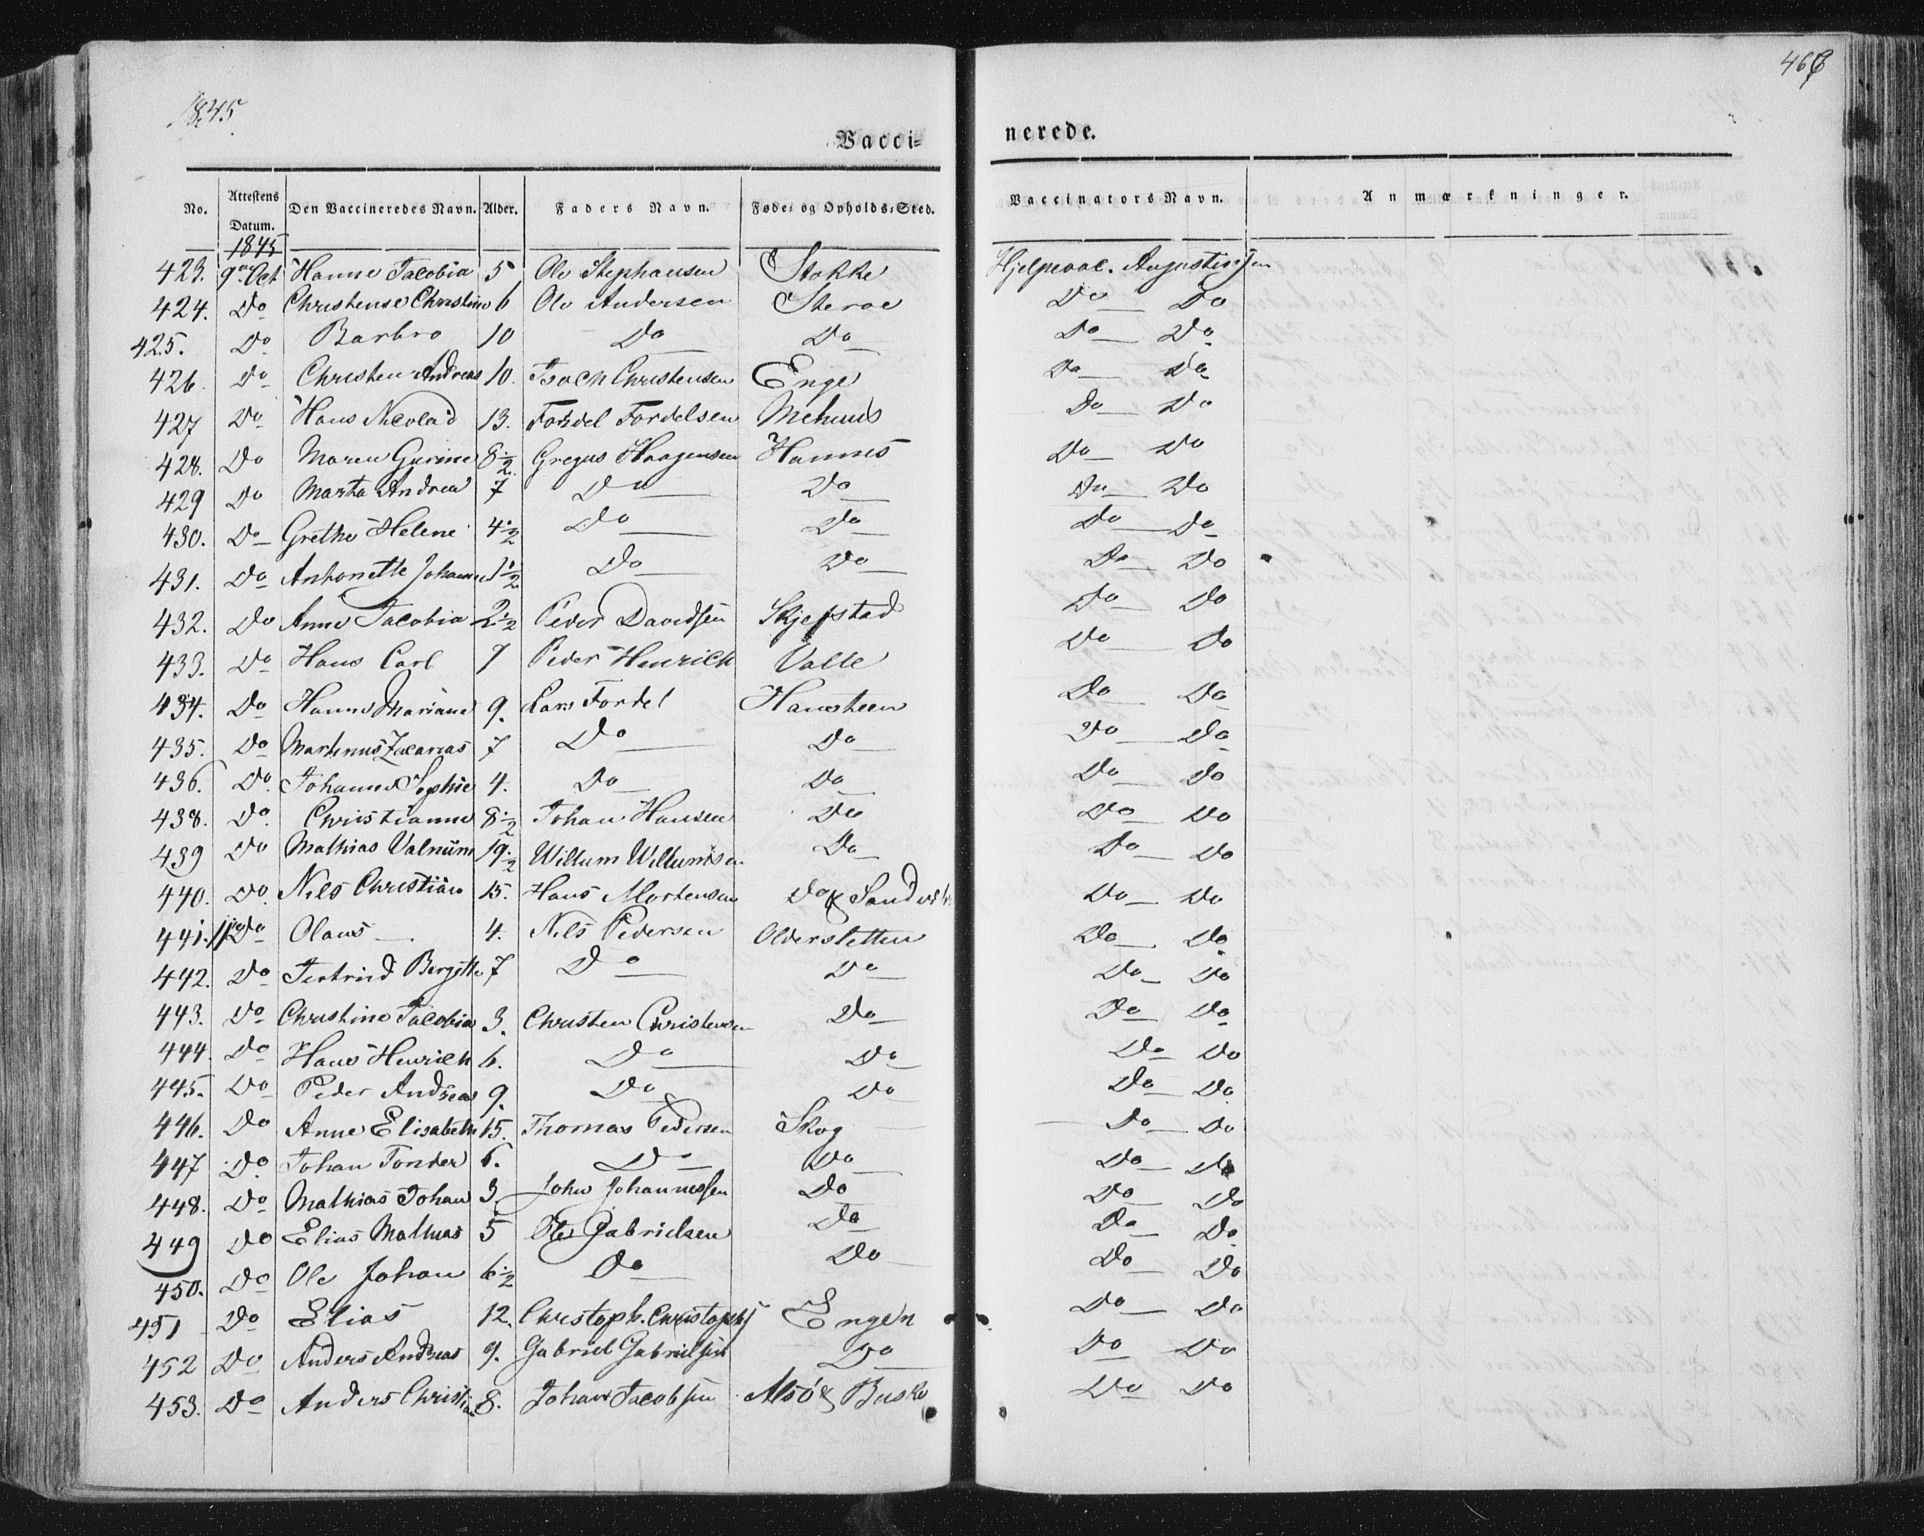 1845.
468
Vacci=
nerede.
No. Attestens Datum. Den Vaccineredes Navn. Alder. Faders Navn. Føde- og Opholds-Sted. Vaccinators Navn. Anmærkninger.
1845
423. 9de Oct Hanne Jacobia 5 Ole Stephansen Stokke Hjelpevac. Augustinsen
424. Do Christense Christine 6 Ole Andersen Steroe Do Do
425. Do Barbro 10 Do Do Do Do
426. Do Christen Andreas 10. Isach Christensen Enge Do Do
427 Do Hans Nicolai 13. Fordel Fordelsen Mehuus Do Do
428. Do Maren Gurine 8 1/2 Gregus Haagensen Hannes Do Do
429 Do Marta Andrea 7 Do Do Do Do
430. Do Grethe Helene 4 1/2 Do Do Do Do
431. Do Antonette Johanne 1 1/2 Do Do Do Do
432. Do Anne Jacobia 2 1/2 Peder Davidsen Skjefstad Do Do
433. Do Hans Carl 7 Peder Henrich Valle Do Do
434. Do Hanne Mariane 9. Lars Fordel Hansteen Do Do
435. Do Martinus Zacarias 7 Do Do Do Do
436. Do Johanne Sophie 4. Do Do Do Do
438. Do Christianne 8 1/2 Johan Hansen Do Do Do
439 Do Mathias Valnum 19 1/2 Willum Willumsen Do Do Do
440. Do Nils Christian 15. Hans Mortensen Do & Do Do
441. Do Olaus 4. Nils Pedersen Olderskletten Do Do
442. Do Bergitte 7 Do Do Do Do
443. Do Christine Jacobia 3. Christen Christensen Do Do Do
444. Do Hans Henrich 6. Do Do Do Do
445. Do Peder Andreas 9. Do Do Do Do
446. Do Anne Elisabeth 15. Thomas Pedersen Skog Do Do
447 Do Johan Tonder 6. Do Do Do Do
448. Do Mathias Johan 3. John Johannessen Do Do Do
449 Do Elias Mathias 5 Gabrielsen Do Do Do
450. Do Ole Johan 6 1/2 Do Do Do Do
451 Do Elias 12. Christoph. Christophs Engen Do Do
452 Do Anders Andreas 9. Gabriel Gabrielsen Do Do Do
453. Do Anders Christian 8. Johan Jacobsen Alsö & Do Do